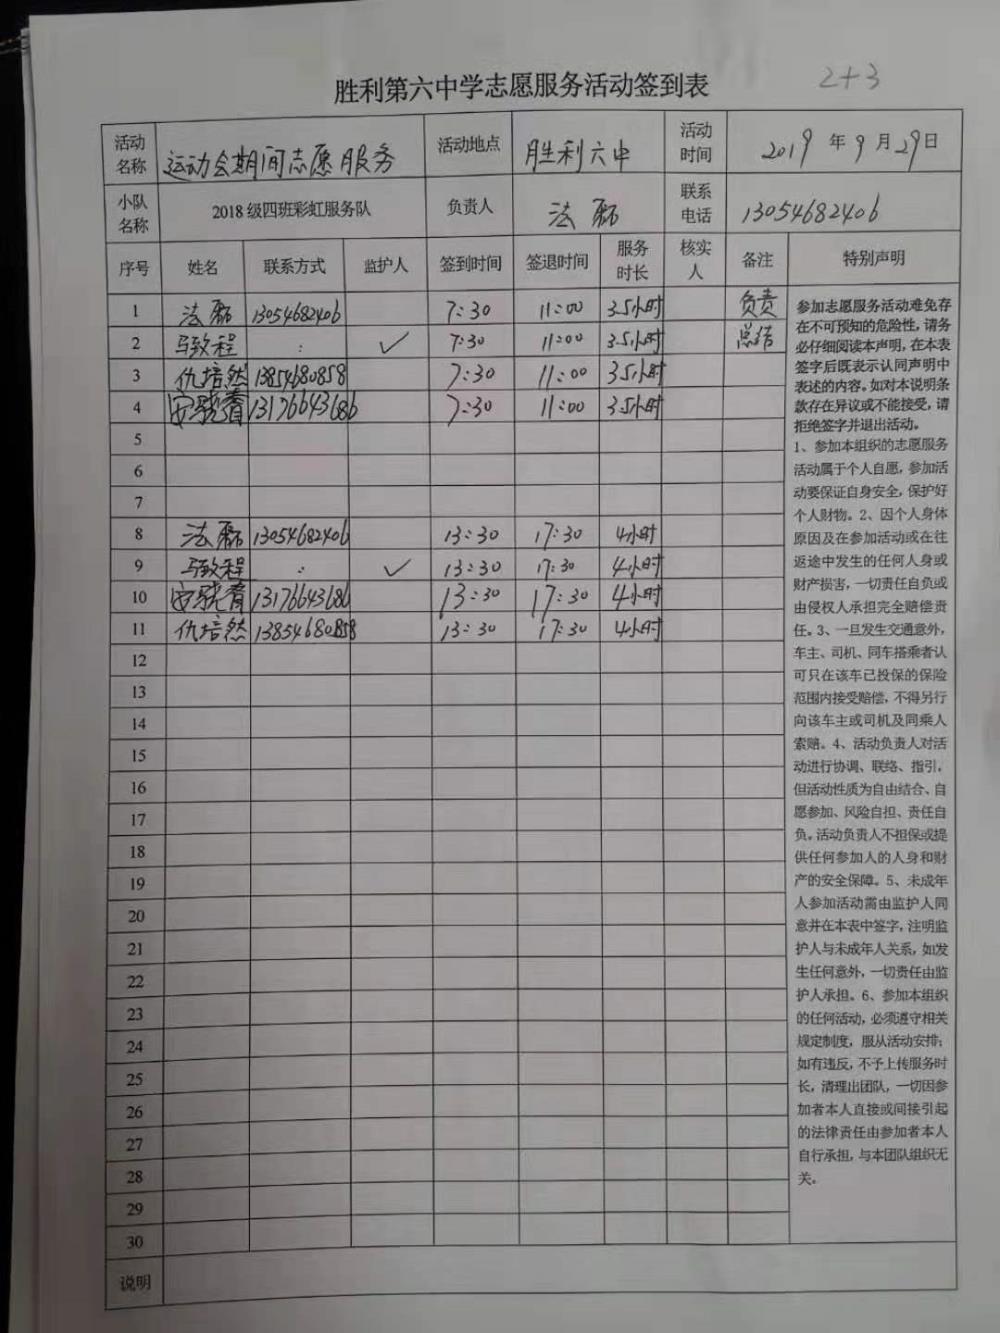 胜利第六中学志愿服务活动签到表 2+3
活动名称 运动会期间志愿服务 活动地点 胜利六中 活动时间 2019年9月29日
小队名称 2018级四班彩虹服务队 负责人 法磊 联系电话 13054682406
序号 姓名 联系方式 监护人 签到时间 签退时间 服务时长 核实人 备注 特别声明
1 法磊 13054682406 7:30 11:00 3.5小时 负责
2 马致程 : ✓ 7:30 11:00 3.5小时 总结
3 仇培然 13854680858 7:30 11:00 3.5小时
4 13176643686 7:30 11:00 3.5小时
5
6
7
8 法磊 13054682406 13:30 17:30 4小时
9 马致程 : ✓ 13:30 17:30 4小时
10 13176643686 13:30 17:30 4小时
11 仇培然 13854680858 13:30 17:30 4小时
12
13
14
15
16
17
18
19
20
21
22
23
24
25
26
27
28
29
30
说明
参加志愿服务活动难免存
在不可预知的危险性，请务
必仔细阅读本声明，在本表
签字后既表示认同声明中
表述的内容。如对本说明条
款存在异议或不能接受，请
拒绝签字并退出活动。
1、参加本组织的志愿服务
活动属于个人自愿，参加活
动要保证自身安全，保护好
个人财物。2、因个人身体
原因及在参加活动或在往
返途中发生的任何人身或
财产损害，一切责任自负或
由侵权人承担完全赔偿责
任。3、一旦发生交通意外，
车主、司机、同车搭乘者认
可只在该车已投保的保险
范围内接受赔偿，不得另行
向该车主或司机及同乘人
索赔。4、活动负责人对活
动进行协调、联络、指引，
但活动性质为自由结合、自
愿参加、风险自担、责任自
负。活动负责人不担保或提
供任何参加人的人身和财
产的安全保障。5、未成年
人参加活动需由监护人同
意并在本表中签字，注明监
护人与未成年人关系，如发
生任何意外，一切责任由监
护人承担。6、参加本组织
的任何活动，必须遵守相关
规定制度，服从活动安排；
如有违反，不予上传服务时
长，清理出团队，一切因参
加者本人直接或间接引起
的法律责任由参加者本人
自行承担，与本团队组织无
关。